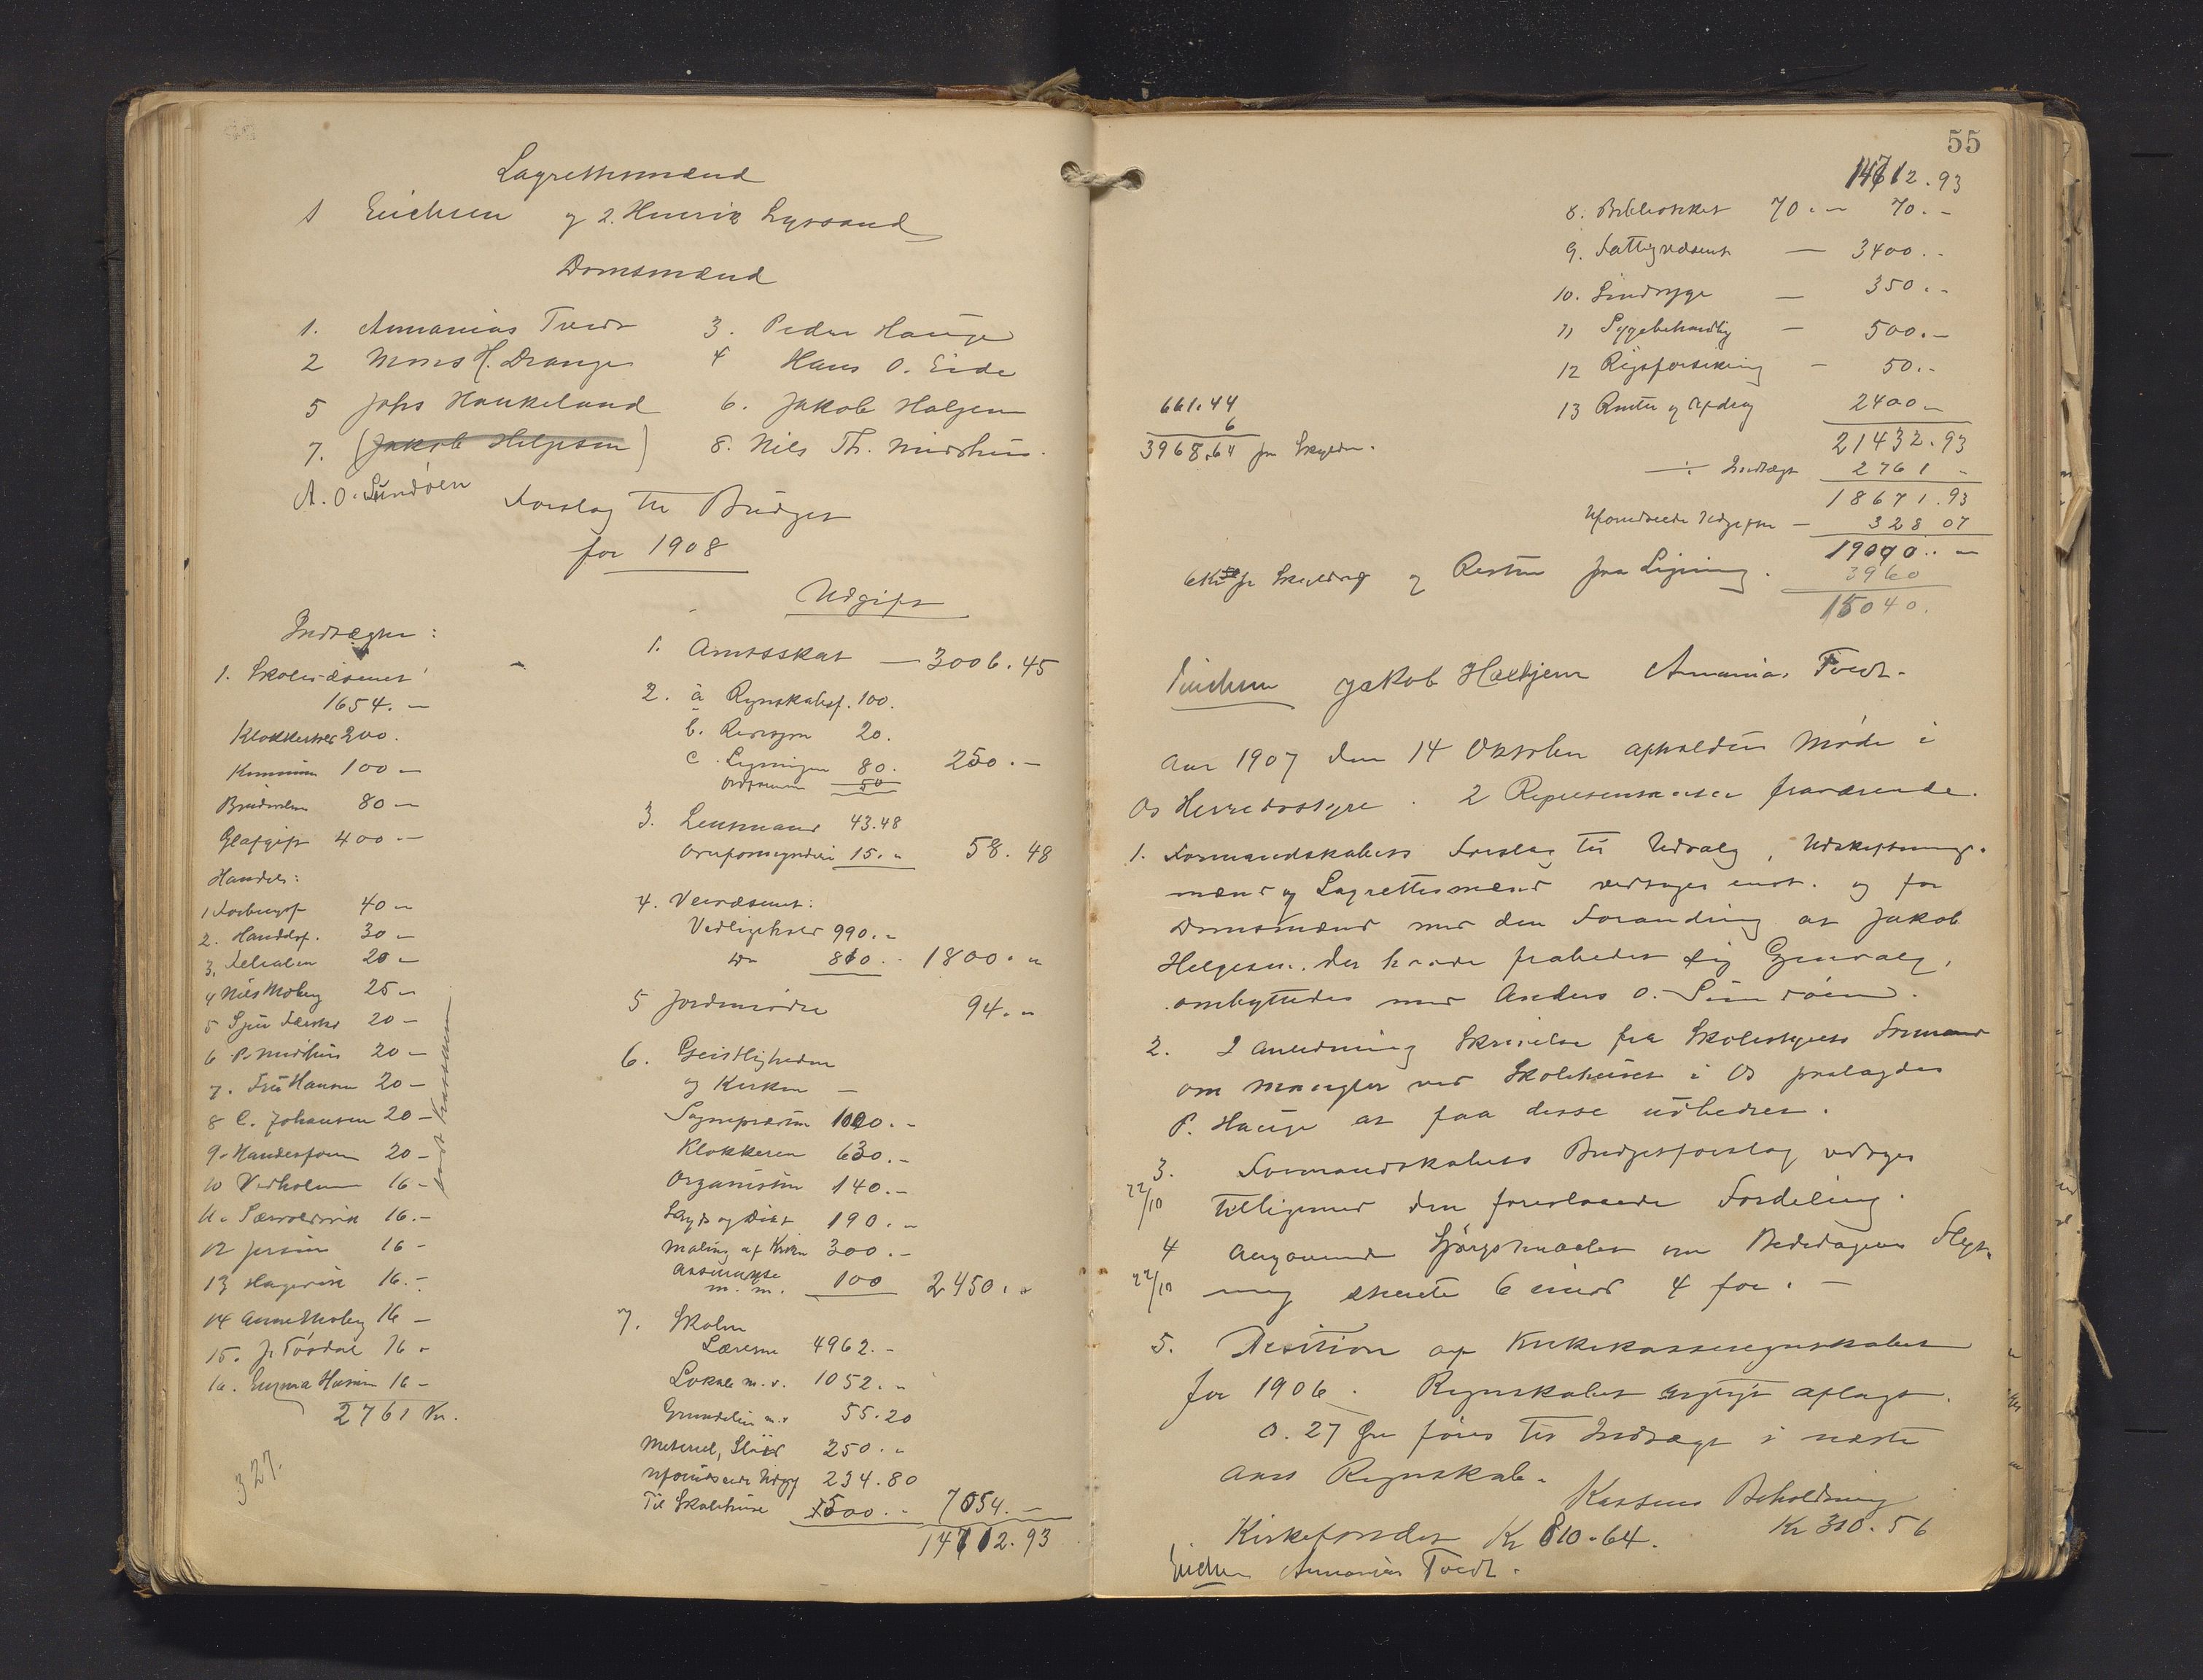 Lagrettesmænd
1 Erichsen og 2. Henrik Lyssand
Domsmænd
1. Annanias Tvedt 3. Peder Hauge
2 Mons H. Drange 4 Hans O. Eide
5 Johs Haukeland 6. Jakob Haljem
7. (Jakob Helgesen) 8. Nils Th. Midthus.
A. O. Sundøen
Forslag til Budget
for 1908
Indtægter:
1. Skolevæsenet
1654. –
Klokkerhver 200.
100 –
80 –
400 –
Handels:
1 40 –
2. Handelsf. 30 –
3. Filialen 20 –
4 Nils Moberg 25 –
5 20 –
6 P. Midthus 20 –
7. Fru Hansen 20 –
8 C. Johansen 20 –
9. Handelsforen 20 –
10 16 –
11. 16. –
12 16 –
13 Hagevik 16. –
14 Anne Moberg 16 –
15. J. Tøsdal 16 –
16. Emma Hansen 16 –
2761 Kr.
327.
Udgift
1. Amtsskat — 3006.45
2. a Regnskabsf. 100.
b. Revisjon 20.
c. Ligningen 80. 250. –
Ordføreren 50
3. Lensmand 43.48
15. – 58.48
4. Veivæsenet:
Vedligehold 990. –
Do 810. – 1800. –
5 Jordmødre 94. –
6. Geistligheden
og Kirken –
Sognepræsten
Klokkeren 630. –
Organisten 140. –
190. –
Maling af Kirken 300. –
Assurance
m. m. 100 2450. –
7. Skolen
Lærerne 4962. –
Lokale m. v. 1052. –
55.20
Materiel, Sløid 250. –
Uforudseede Udgif 234.80
Til Skolehuse 7054. –
14712.93
55
14712.93
8. Biblioteket 70. – 70. –
9. Fattigvæsenet — 3400. –
10. Sindsyge — 350. –
11 Sygebehandling – 500. –
12 50. –
13 Renter og Afdrag 2400 –
21432.93
÷ Indtægt 2761 –
18671.93
Uforudseede Udgifter – 328 07
19000. –
3960
15040.
661.44
6
3968.64 paa Skylden.
og Resten paa Ligning.
Erichsen Jakob Haljem Annanias Tvedt.
Aar 1907 den 14 Oktober afholdtes Møde i
Os Herredsstyre. 2 Repræsentanter fraværende.
1. Formandskabets Forslag til Udvalg, Udskiftnings-
mænd og Lagrettesmænd vedtages enst. og for
Domsmænd med den Forandring at Jakob
Helgesen, der havde frabedet sig Gjenvalg,
ombyttedes med Anders O. Sundøen.
2. I Anledning Skrivelse fra Skolestyrets Formand
om Mangler ved Skolehuset i Os paalagdes
P. Hauge at faa disse udbedret.
3. Formandskabets Budgetforslag vedtages
22/10 tilligemed den foreslaaede Fordeling.
4 Angaaende Spørgsmaalet om Bededagens Flyt-
22/10 ning stemte 6 imod 4 for. –
5. Desition af Kirkekasseregnskabet
for 1906. Regnskabet rigtigt aflagt.
0.27 Øre føres til Indtægt i næste
Aars Regnskab.
Kassens Beholdning
Kirkefondet Kr 810.64. Kr 310.56
Erichsen Annanias Tvedt.